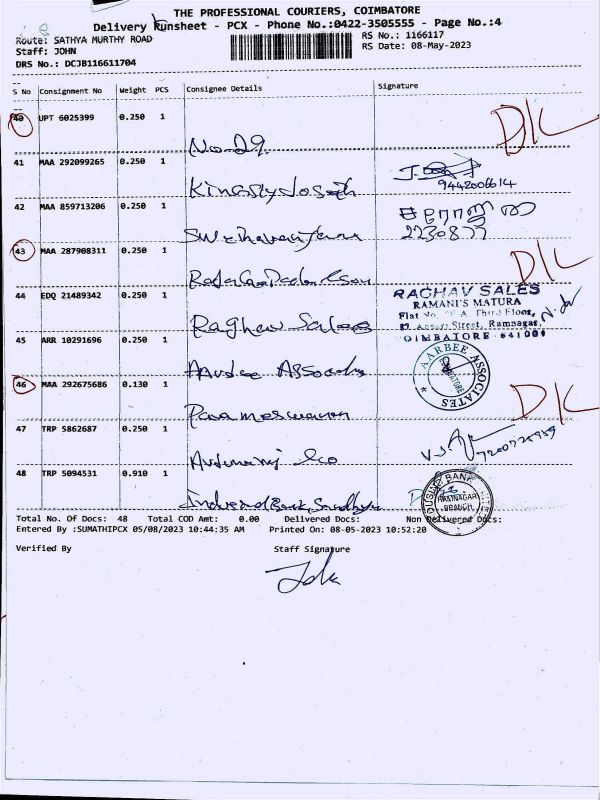 THE PROFESSIONAL COURIERS, COIMBATORE
Delivery Runsheet - PCX - Phone No.:0422-3505555 - Page No.:4
Route: SATHYA MURTHY ROAD
RS No.: 1166117
Staff: JOHN
RS Date: 08-May-2023
DRS No.: DCJB116611704
S No Consignment No Weight PCS Consignee Details Signature
40 UPT 6025399 0.250 1
D/L
No 29
41 MAA 292099265 0.250 1
Kingslyjoseph
9442006614
42 MAA 859713206 0.250 1
சரோஜா
2230877
43 MAA 287908311 0.250 1
D/L
44 EDQ 21489342 0.250 1
Raghav Sales
RAGHAV SALES
RAMANI'S MATURA
Third Floor,
Street, Ramnagar,
COIMBATORE - 641009
45 ARR 10291696 0.250 1
Aarbee Associates
AARBEE ASSOCIATES
COIMBATORE
46 MAA 292675686 0.130 1
D/L
Parameswaran
47 TRP 5862687 0.250 1
48 TRP 5094531 0.910 1
Indusind Bank Sandhya
INDUSIND BANK
RAMNAGAR
BRANCH
Total No. Of Docs: 48 Total COD Amt: 0.00 Delivered Docs: Non Delivered Docs:
Entered By :SUMATHIPCX 05/08/2023 10:44:35 AM Printed On: 08-05-2023 10:52:20
Verified By Staff Signature
John